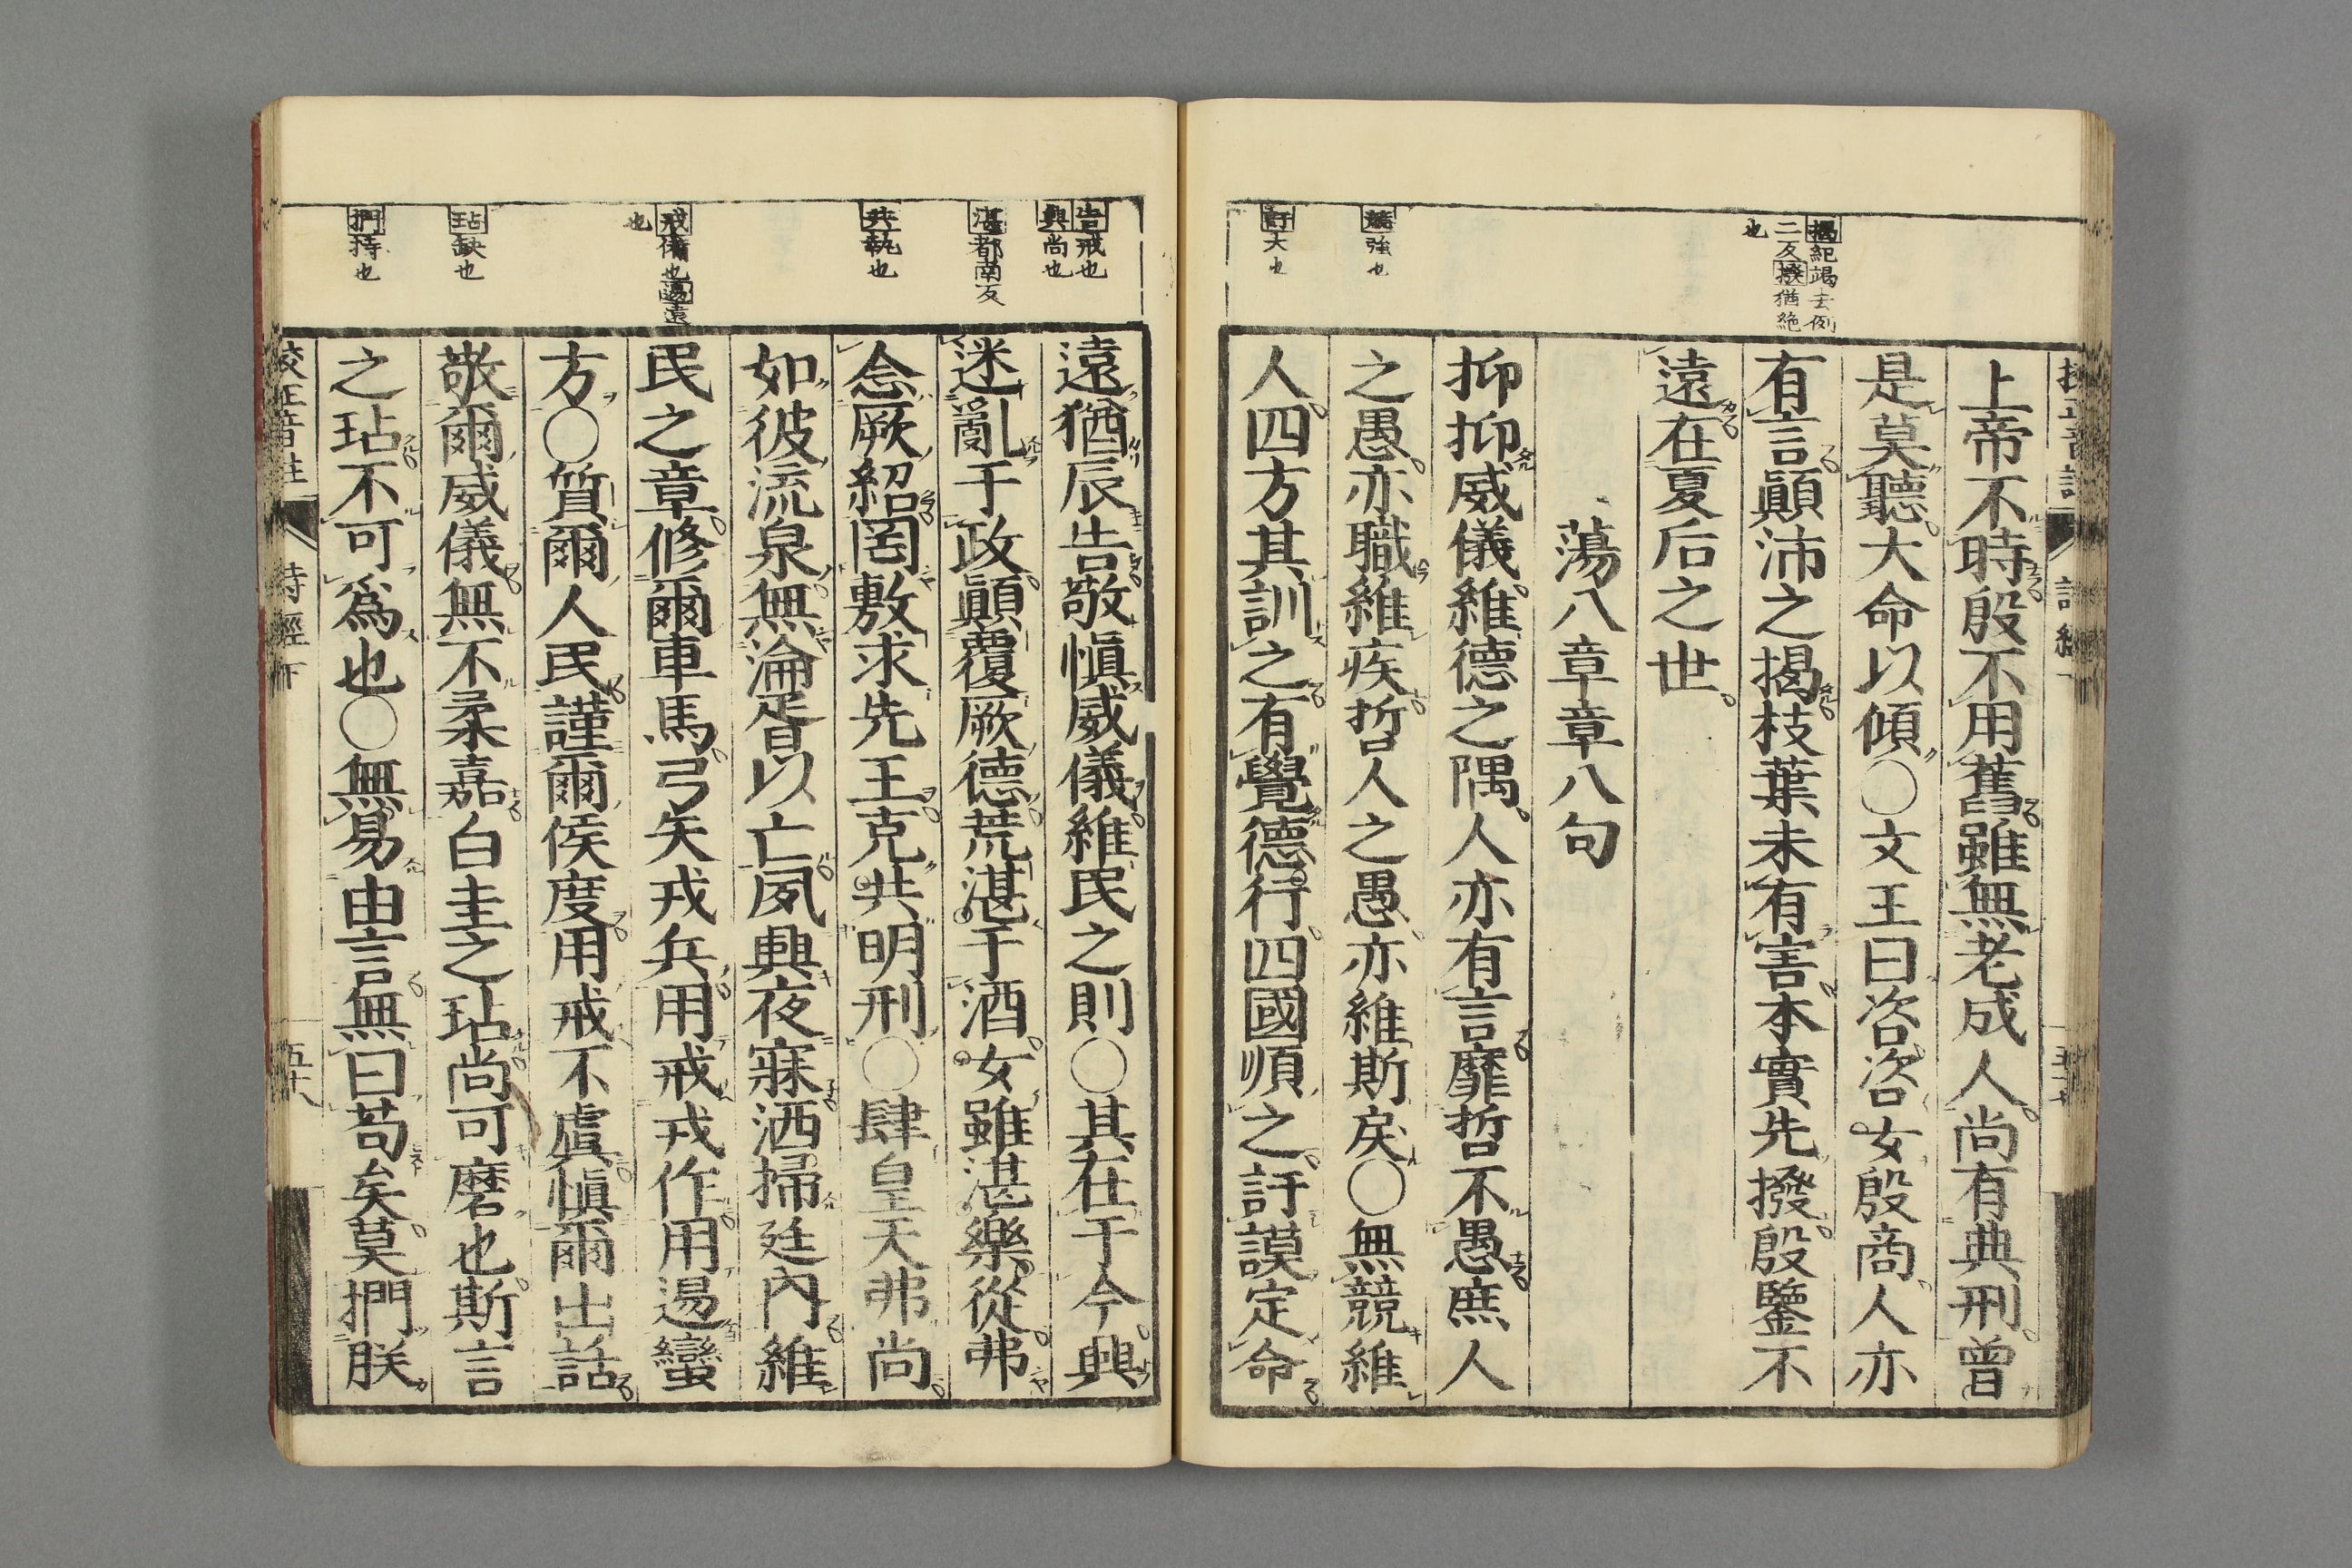 揭紀竭去例
二反撥猶絶
也
競強也
訏大也
上帝不時殷不用舊雖無老成人尚有典刑曾
是莫聽大命以傾○文王曰咨咨女殷商人亦
有言顚沛之揭枝葉未有害本實先撥殷鑒不
遠在夏后之世
蕩八章章八句
抑抑威儀維德之隅人亦有言靡哲不愚庶人
之愚亦職維疾哲人之愚亦維斯戾○無競維
人四方其訓之有覺德行四國順之訏謨定命
告戒也
興尚也
湛都南反
共執也
戒備也逷遠
也
玷缺也
捫持也
遠猶辰告敬愼威儀維民之則○其在于今興
迷亂于政顚覆厥德荒湛于酒女雖湛樂從弗
念厥紹罔敷求先王克共明刑○肆皇天弗尚
如彼流泉無淪胥以亡夙興夜寐洒掃廷內維
民之章修爾車馬弓矢戎兵用戒戎作用逷蠻
方○質爾人民謹爾侯度用戒不虞愼爾出話
敬爾威儀無不柔嘉白圭之玷尚可磨也斯言
之玷不可爲也○無易由言無曰苟矣莫捫朕
校正音註 詩經下 五十八